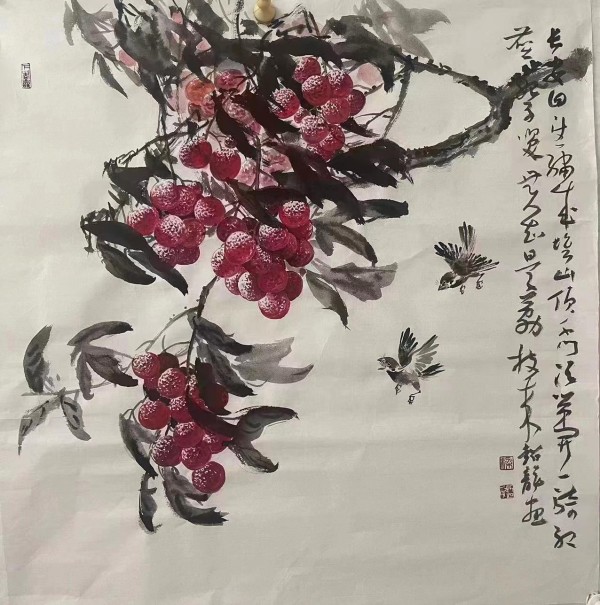 长安回望绣成堆山顶千门次第开一骑红
尘妃子笑无人知是荔枝来 画